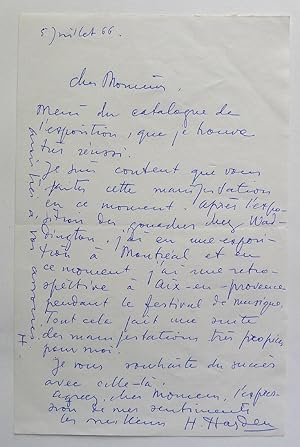 5 Juillet 66.
cher Monsieur,
Merci du catalogue de
l'exposition, que je trouve
très réussi.
Je suis content que vous
faites cette manifestation
en ce moment. Après l'expo-
sition des gouaches chez Wad-
dington, j'ai eu une exposi-
tion à Montréal et en
ce moment j'ai une retro-
spective à Aix-en-provence
pendant le festival de musique.
Tout cela fait une suite
des manifestations très propices
pour moi.
Je vous souhaite du succès
avec celle-là.
agréez, cher Monsieur, l'expres-
sion de mes sentiments
les meilleurs H. Hartung